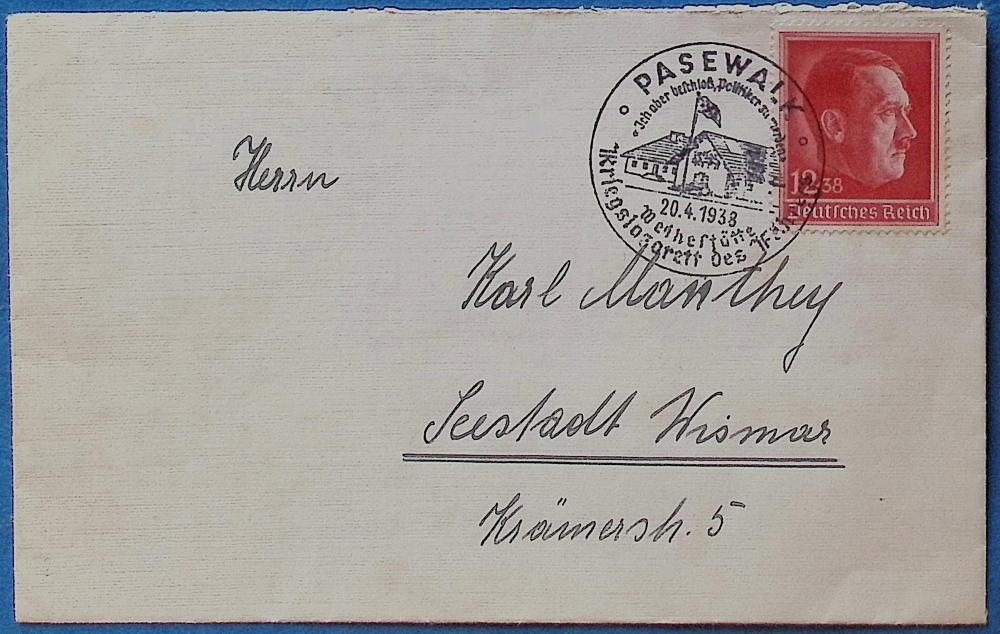 PASEWALK
"Ich aber beschloß, Politiker zu werden"
20.4.1938
Weihestätte
Kriegslazarett des Führers
12+38
Deutsches Reich
Herrn
Karl Manthey
Seestadt Wismar
Krämerstr. 5